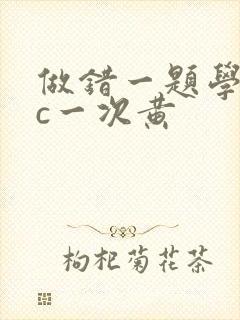 做錯一題學
c一次黄
枸杞菊花茶